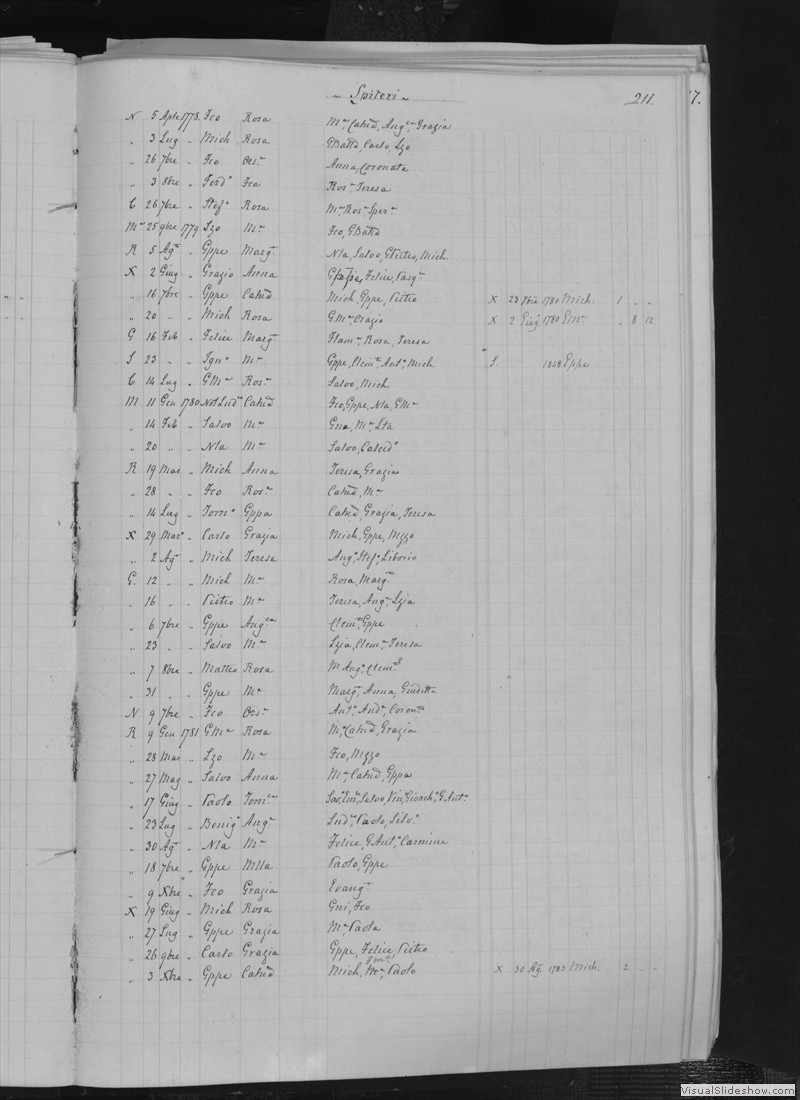 Spiteri 211. 17.
N 5 Aple 1778. Fco Rosa Ma, Catud, Anga, Grazia
" 3 Lug " Mich Rosa GBatta, Carlo, Lzo
" 26 7bre " Fco Orsa Anna, Coronata
" 3 8bre " Ferdo Fca Rosa, Teresa
C 26 7bre " Stefo Rosa Ma, Rosa, Spera
Ma 25 9bre 1779 Lzo Ma Fco, GBatta
R 5 Ago " Gppe Marga Nla, Salvo, GPietro, Mich
X 2 Giug " Grazio Anna Felice, Pasqa
" 16 7bre " Gppe Catud Mich, Gppe, Pietro X 23 7bre 1780 Mich. 1 " "
" 20 " " Mich Rosa GMa, Orazio X 2 Giug 1780 GMa " 8 12
G 16 Feb " Felice Marga Flama, Rosa, Teresa
S 23 " " Igno Ma Gppe, Clemte, Anto, Mich S. 1848 Gppe
C 14 Lug " GMa Rosa Salvo, Mich
M 11 Gen 1780 Not Ludo Catud Fco, Gppe, Nla, GMa
" 14 Feb " Salvo Ma Gna, Ma, Lta
" 20 " " Nla Ma Salvo, Catudo
R 19 Mar " Mich Anna Teresa, Grazia
" 28 " " Fco Rosa Catud, Ma
" 14 Lug " Tomo Gppa Catud, Grazia, Teresa
X 29 Maro " Carlo Grazia Mich, Gppe, Nzzo
" 2 Ago " Mich Teresa Ango, Stefo, Liborio
G. 12 " " Mich Ma Rosa, Marga
" 16 " " Pietro Ma Teresa, Anga, Lzia
" 6 7bre " Gppe Angca Clemte, Gppe
" 23 " " Salvo Ma Lzia, Clema, Teresa
" 7 8bre " Matteo Rosa M Ango, Clemte
" 31 " " Gppe Ma Marga, Anna, Giuditta
N 9 7bre " Fco Orsa Anto, Ando, Corona
R 9 Gen 1781 GMa Rosa Ma, Catud, Grazia
" 28 Mar " Lzo Ma Fco, Nzzo
" 27 Mag " Salvo Anna Ma, Catud, Gppa
" 17 Giug " Paolo Tomca Savo, Salvo, Vino, Gioacho, GAnto
" 23 Lug " Benigo Anga Ludo, Paolo, Silvo
" 30 Ago " Nla Ma Felice, GAnto, Carmine
" 18 7bre " Gppe Mlla Paolo, Gppe
" 9 Xbre " Fco Grazia Evanga
X 19 Giug " Mich Rosa Gni, Fco
" 27 Lug " Gppe Grazia Ma Paola
" 26 9bre " Carlo Grazia Gppe, Felice, Pietro
" 3 Xbre " Gppe Catud Mich, Ma, Paolo X 30 Ago 1783 Mich. 2 " "
VisualSlideshow.com